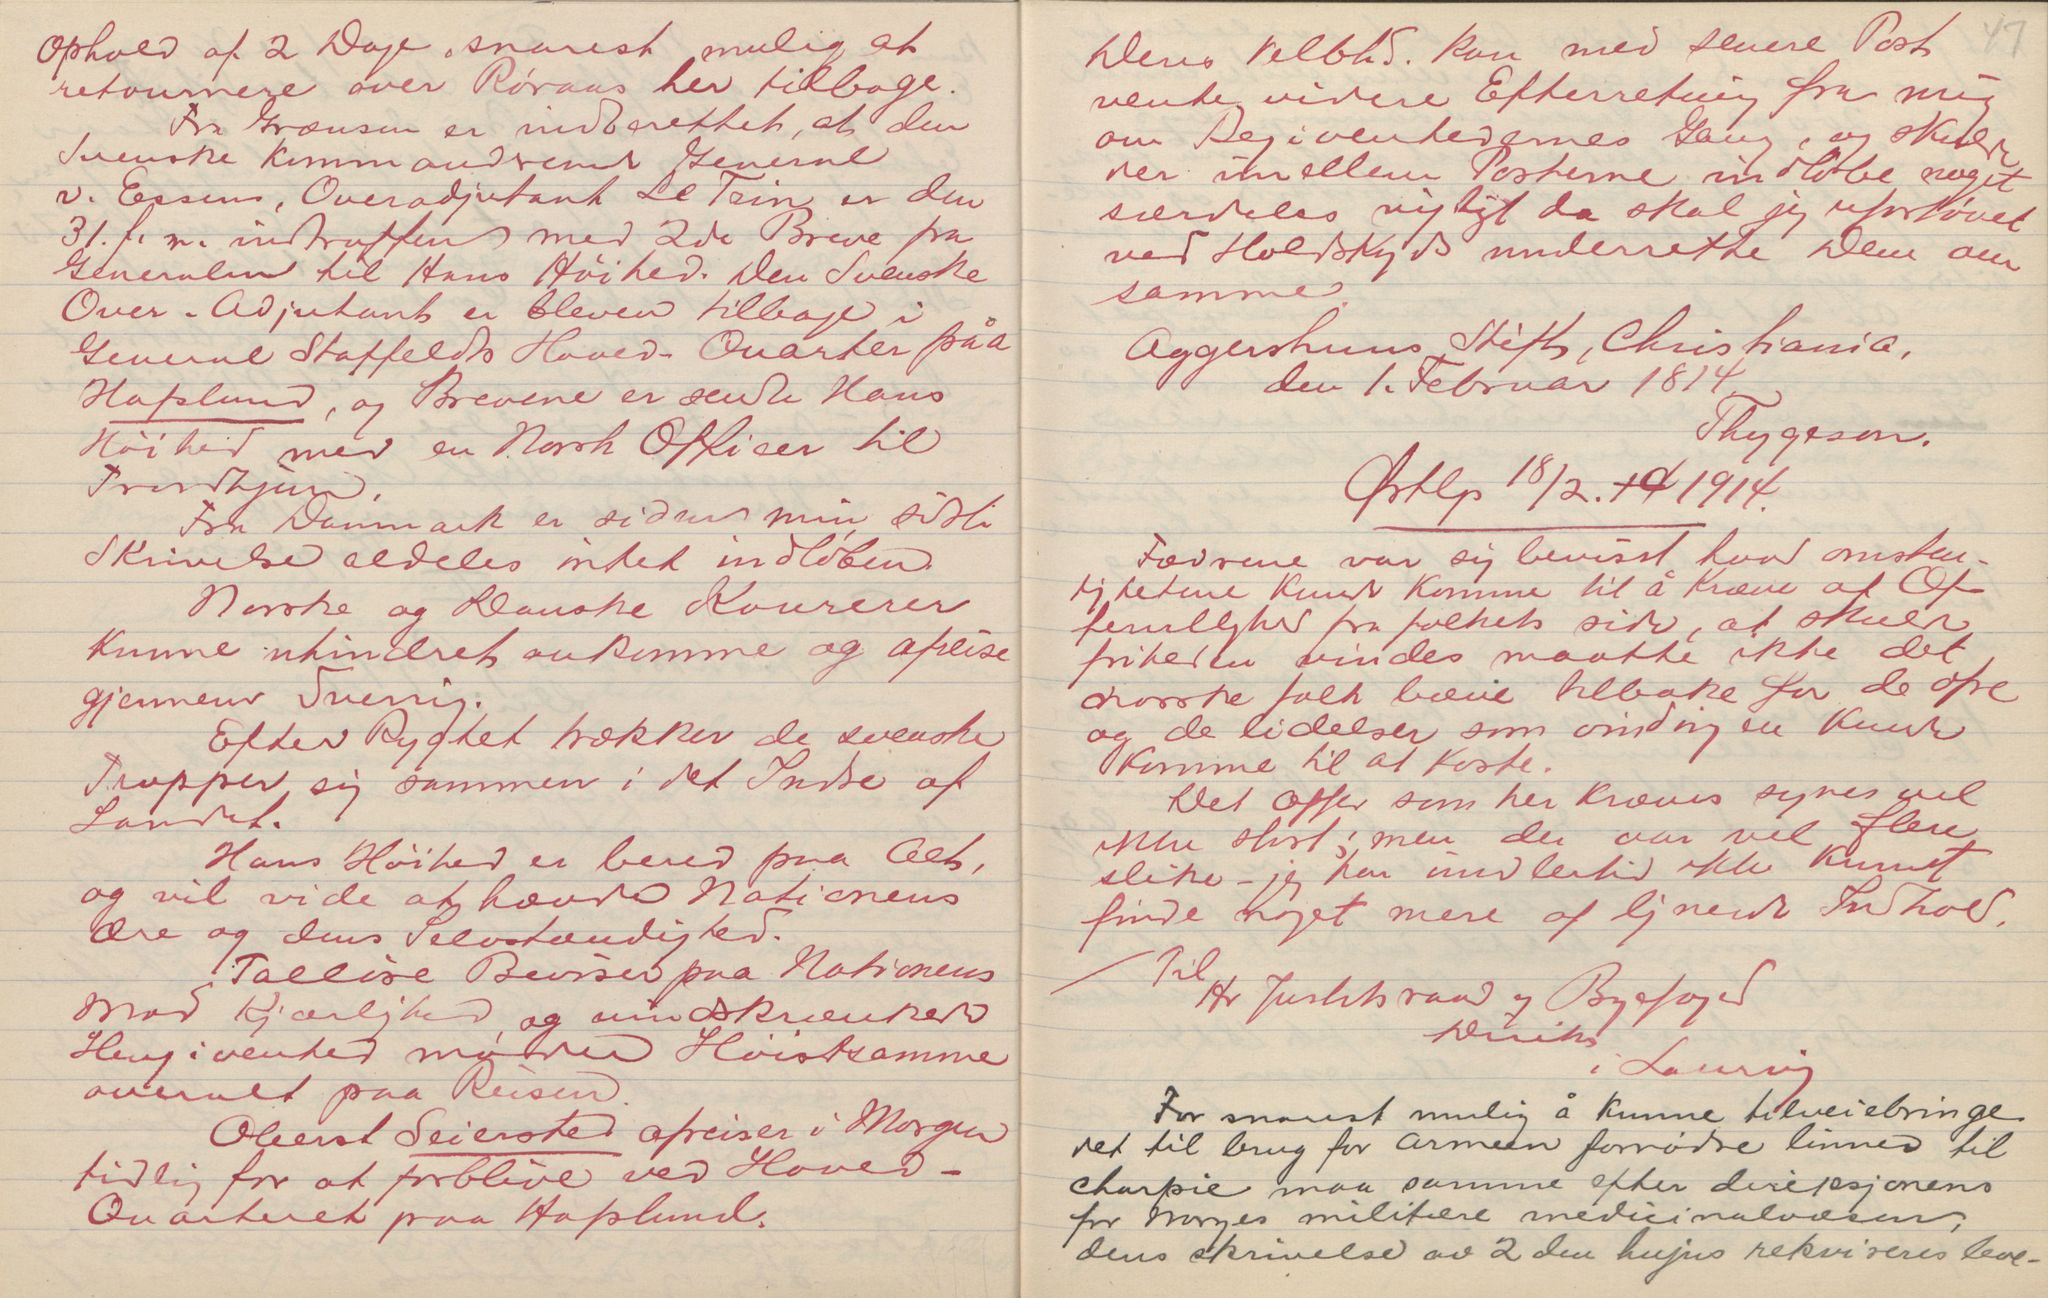 Ophold af 2 Dage snarest mulig at
retournere over Röraas her tilbage.
Fra Grænsen er indberettet, at den
Svenske Kommanderende General
v. Essens, Overadjutant Le Tzin er den
31. f. m. indtruffen med 2de Breve fra
Generalen til Hans Höihed. Den Svenske
Over-Adjutant er bleven tilbage i
General Staffeldts Hoved-Quarter påa
Hafslund, og Brevene er sendte Hans
Höihed med en Norsk Officer til
Trondhjem.
Fra Danmark er siden min sidste
Skrivelse aldeles intet indlöben.
Norske og Danske Kourerer
kunne uhindret ankomme og afreise
gjennem Sverrig.
Efter Rygtet trækker de svenske
Tropper sig sammen i det Indre af
Landet.
Hans Höihed er bered paa Alt,
og vil vide at hævde Nationens
Ære og dens Selvstændighed.
Talløse Beviser paa Nationens
Mod Kjærlighed og uindskrænkede
Hengivenhed møder Höistsamme
overalt paa Reisen.
Oberst Seiersted afreiser i Morgen
tidlig for at forblive ved Hoved-
Quarteret paa Hafslund.
47
Deres Velbhd. kan med senere Post
vente videre Efterretning fra mig
om Begivenhedernes Gang, og skulde
der imellem Posterne indlöbe noget
særdeles vigtigt da skal jeg ufortövet
ved Holdskyds underrette Dem om
samme.
Aggershuus Stift, Christiania,
den 1. Februar 1814
Thygeson.
Østlp 18/2. 1914.
Fædrene var sig bevisst hvad omsten-
dighetene kunde komme til å kræve af Of-
fervillighed fra folkets side, at skulde
friheden vindes maatte ikke det
norske folk bæve tilbake for de ofre
og de lidelser som vinding en kunde
komme til at koste.
Det offer som her kræves synes vel
ikke stort; men der var vel flere
slike - jeg har imidlertid ikke kunnet
finde noget mere af lignende Indhold.
Til
Hr Justitsraad og Byefoged
i Laurvig
For snarest mulig å kunne tilveiebringe
det til brug for armeen fornødne linned til
charpie maa samme efter direksjonens
for Norges militære medicinalvæsen,
dens skrivelse av 2 den hujus rekvireres leve-